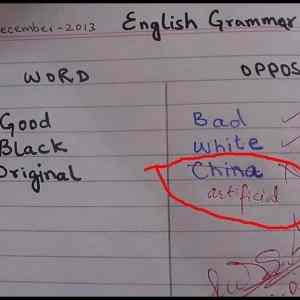 ecember-2013 English Grammar
WORD OPPOS
Good Bad
Black White
Original China
artificial